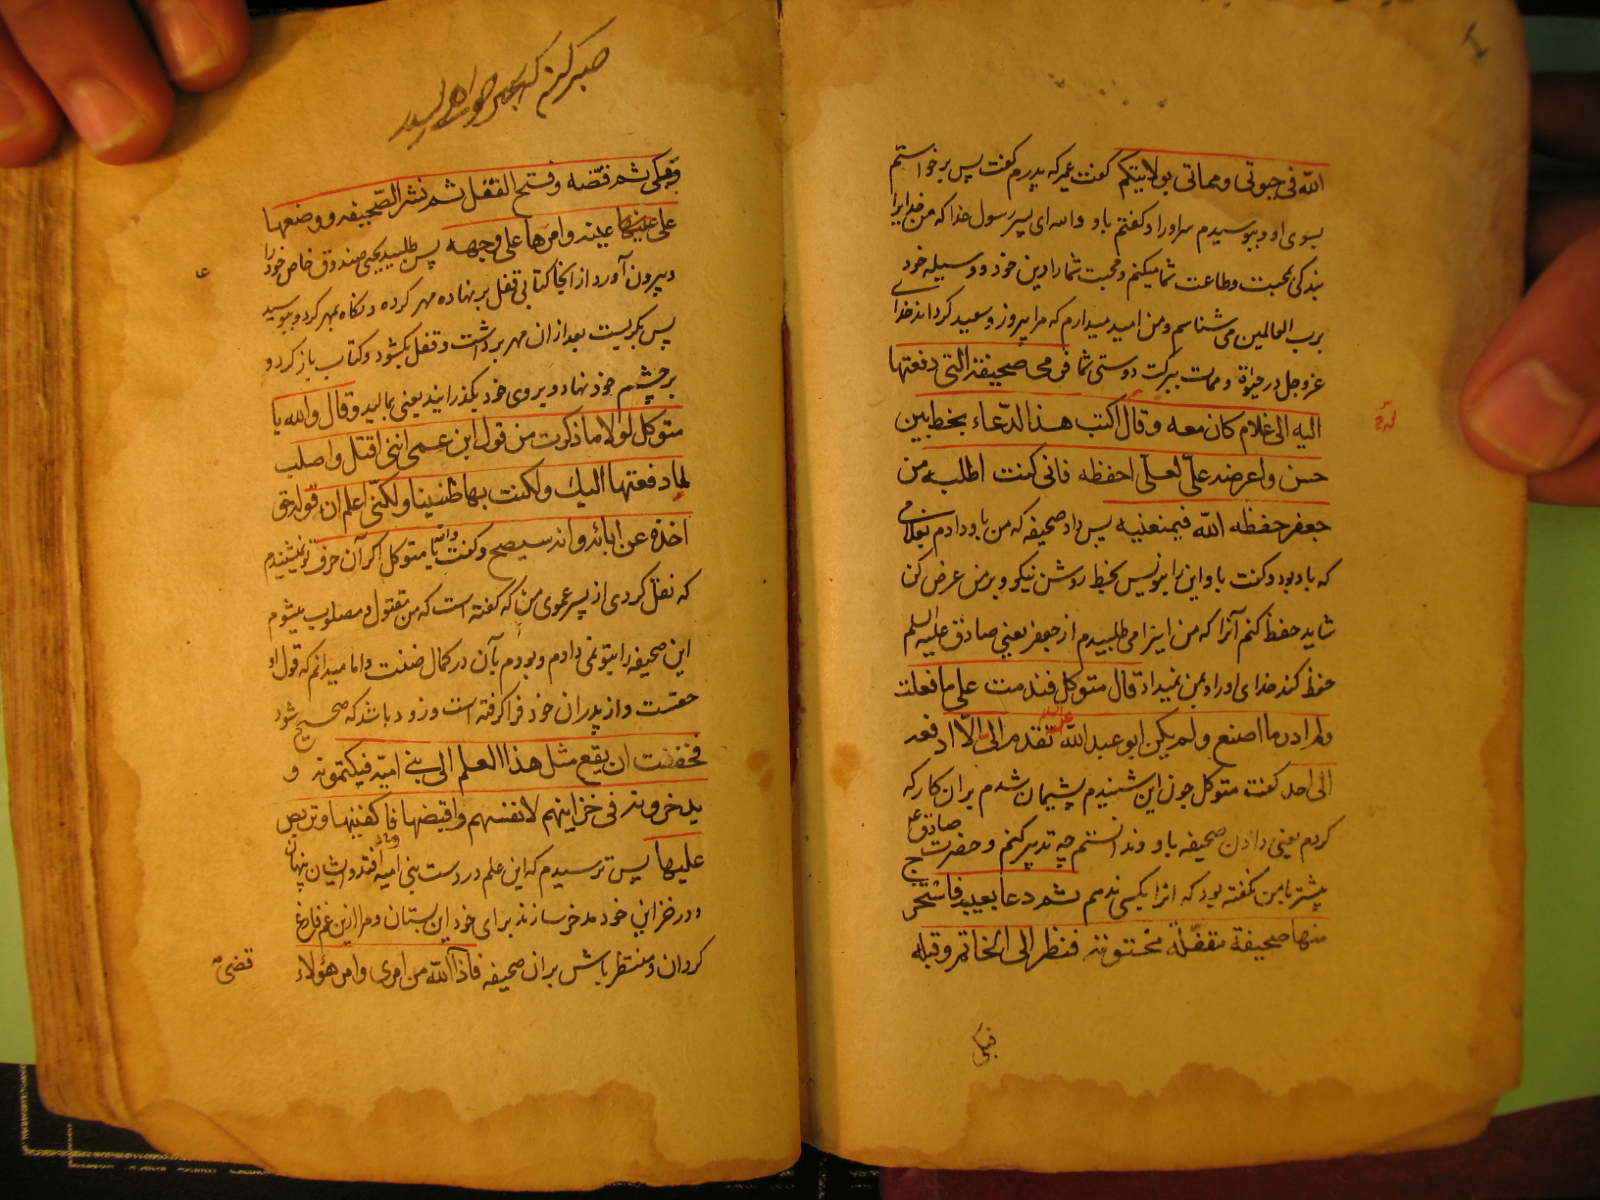 الله فی حیوتی ومماتی بولایتکم گفت عمیر که پدرم گفت پس برخواستم
بسوی او و ببوسیدم سر او را و گفتم باو والله ای پسر رسول خدا که من خدایرا
بندگی بمحبت وطاعت شما میکنم ومحبت شما را دین خود و وسیله خود
برب العالمین می شناسم ومن امید میدارم که مرا پیروز وسعید گرداند خدا
عز وجل در حیوة وممات ببرکت دوستی شما فرمی صحیفته التی دفعتها
الیه الی غلام کان معه وقال اکتب هذا الدّعاء بخط بیّن
حسن واعرضه علیّ لعلّی احفظه فانی کنت اطلبه من
جعفر حفظه الله فیمنعنیه پس داد صحیفه که من باو دادم بغلامی
که با او بود وگفت باو این را بنویس بخط روشن نیکو وبر من عرض کن
شاید حفظ کنم آنرا که من اینرا می طلبیدم از جعفر یعنی صادق علیه السلم
حفظ کند خدای او را وبمن نمیداد قال متوکل فندمت علی ما فعلت
ولم ادر ما اصنع ولم یکن ابو عبد الله علیه السلم تقدم الیّ الّا ادفعه
الی احد گفت متوکل چون این شنیدم پشیمان شدم بران کار که
کردم یعنی دادن صحیفه باو وندانستم چه تدبیر کنم وحضرت صادق ع
پیشتر بامن نگفته بود که انرا بکسی ندهم ثم دعا بعیبة فاستخرج
منها صحیفة مقفلة مختومة فنظر الی الخاتم وقبله
فبکی
صبر کن
وبکی ثم فضّه وفتح القفل ثم نشر الصّحیفه ووضعها
علی عینه وامرّها علی وجهه پس طلبید یحیی صندوق خاص خود را
وبیرون آورد از آنجا کتابی قفل بر نهاده مهر کرده ونگاه بمهر کرد وببوسید
پس بگریست بعد ازان مهر برداشت وقفل بگشود وکتاب باز کرد و
بر چشم خود نهاد وبروی خود بگذرانید یعنی بمالید وقال والله یا
متوکل لولا ما ذکرت من قول ابن عمی اننی اقتل واصلب
لما دفعتها الیك ولکنت بها ظنینا ولکنّی اعلم ان قوله حق
اخذه عن ابائه وانه سیصح وگفت والله یا متوکل اگر آن حرف نمیشنیدم
که نقل کردی از پسر عموی من که گفته است که من مقتول ومصلوب میشوم
این صحیفه را بتو نمی دادم وبودم بآن در کمال ضنت واما میدانم که قول او
حقست واز پدران خود فرا گرفته است وزود باشد که صحیح شود
فخفت ان یقع مثل هذا العلم الی بنی امیه فیکتموه و
یدخروه فی خزاینهم لانفسهم فاقبضها واکفنیها وتربص
علیها پس ترسیدم که این علم در دست بنی امیه افتد وایشان پنهان
ودر خزاین خود مدخر سازند برای خود این بستان ومرا ازین غم فارغ
گردان ومنتظر باش بران صحیفه فاذا الله من امری وامر هؤلاء
قضی